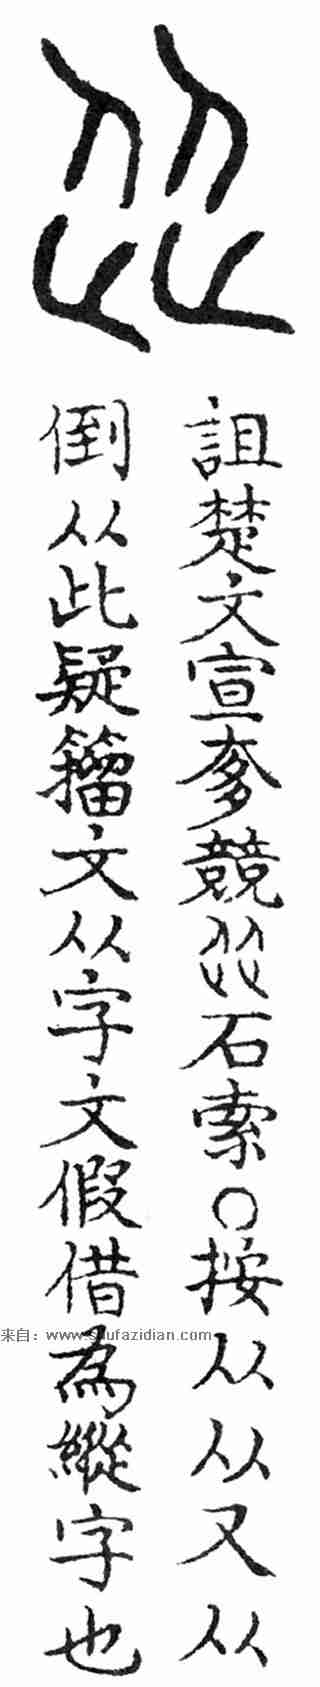 詛楚文宣奓競从石索○按从从又从
倒从此疑籀文从字文假借為縱字也
来自：www.shufazidian.com